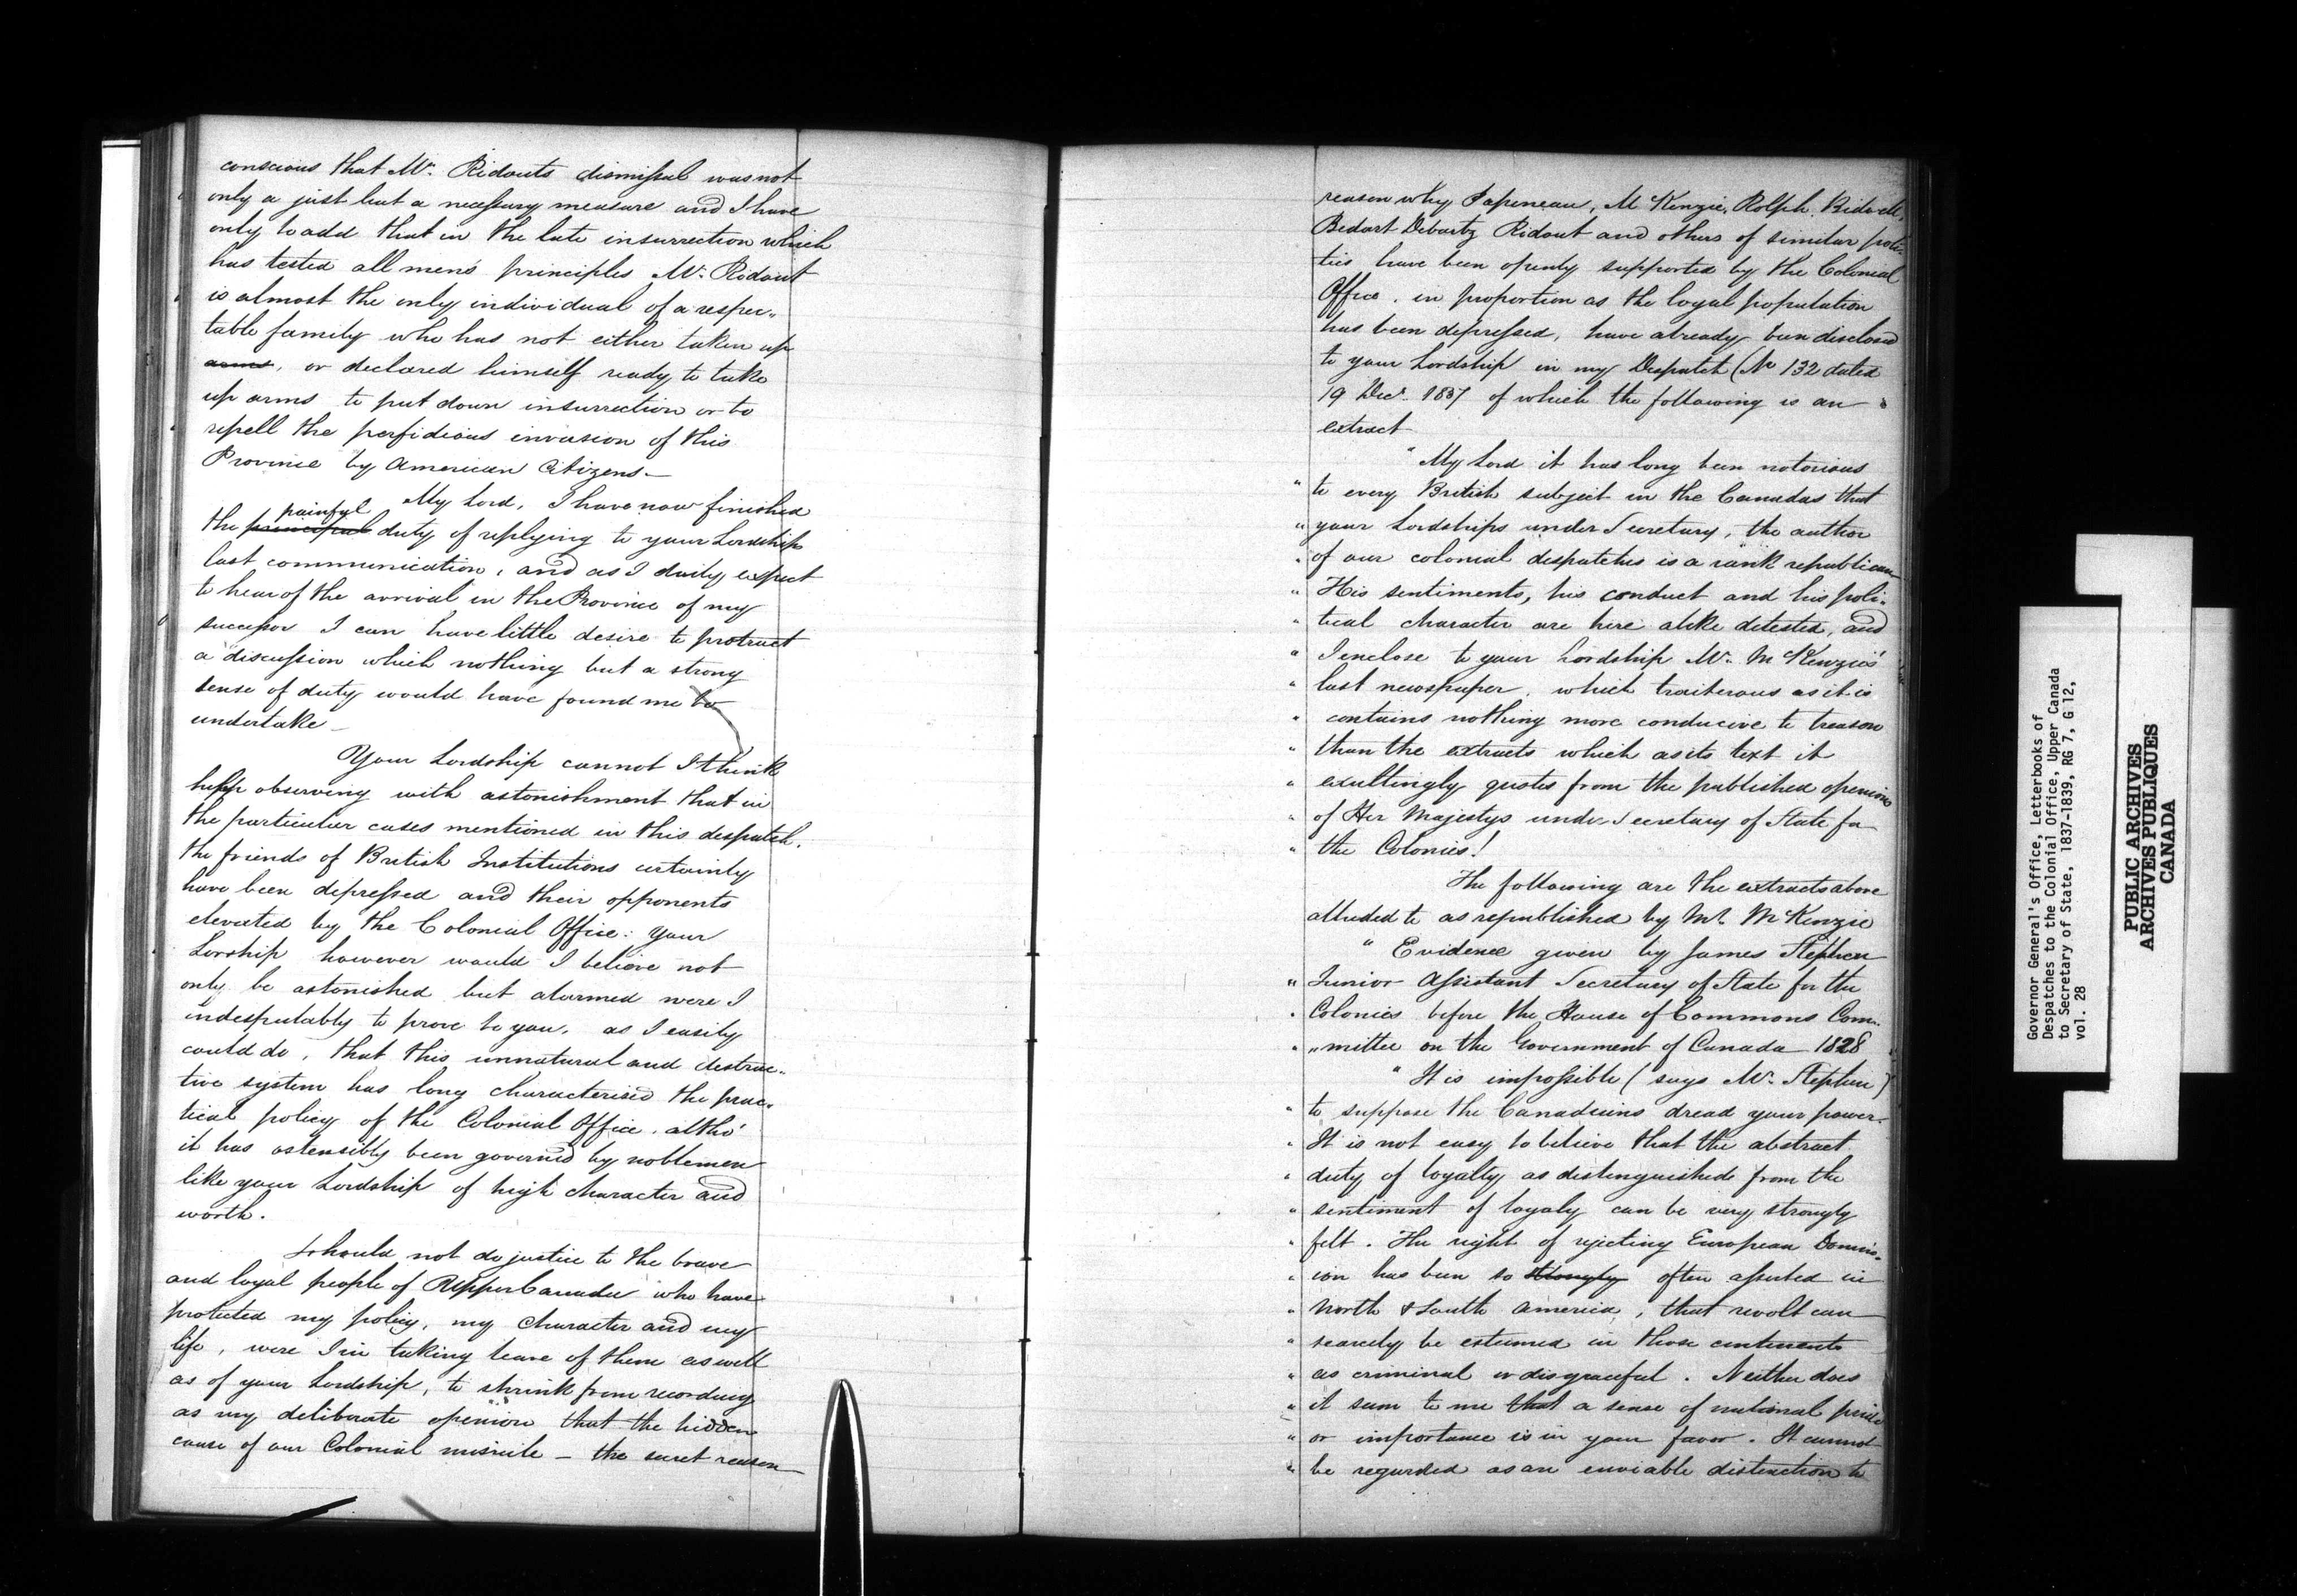 conscious that Mr. Ridouts dismissal was not
only a just but a necessary measure and I have
only to add that in the late insurrection which
has tested all men's principles Mr. Ridout
is almost the only individual of a respec„
table family who has not either taken up
arms, or declared himself ready to take
up arms to put down insurrection or to
repell the perfidious invasion of this
Province by American Citizens.—
My Lord, I have now finished
painful
the principal duty of replying to your Lordships
last communication, and as I daily expect
to hear of the arrival in the Province of my
successor I can have little desire to protract
a discussion which nothing but a strong
sense of duty would have found me to
undertake —
Your Lordship cannot I think
help observing with astonishment that in
the particular cases mentioned in this despatch,
the friends of British Institutions certainly
have been depressed and their opponents
elevated by the Colonial Office: your
Lorship however would I believe not
only be astonished but alarmed were I
indesputably to prove to you, as I easily
could do, that this unnatural and destruc„
tive system has long characterised the prac„
tical policy of the Colonial Office, altho'
it has ostensibly been governed by noblemen
like your Lordship of high character and
worth.
I should not do justice to the brave
and loyal people of Upper Canada who have
protected my policy, my character and my
life, were I in taking leave of them as well
as of your Lordship, to shrink from recording
as my deliberate openion that the hidden
cause of our Colonial misrule — the secret reason
reason why Papeneau, McKenzie, Rolph, Bidwell,
Bedart Debartz Ridout and others of similar poli„
tics have been openly supported by the Colonial
Office, in proportion as the loyal population
has been depressed, have already been disclosed
to your Lordship in my Despatch (No 132 dated
19 Decr. 1837 of which the following is an
extract
"My Lord it has long been notorious
" to every British subject in the Canadas that
" your Lordships under Secretary, the author
" of our colonial despatches is a rank republican
" His sentiments, his conduct and his poli„
" tical character are here alike detested, and
" I enclose to your Lordship Mr. McKenzie's
" last newspaper, which traiterous as it is
" contains nothing more conducive to treason
" than the extracts which as its text it
" exultingly quotes from the published openions
" of Her Majestys under Secretary of State for
" the Colonies!
The following are the extracts above
alluded to as republished by Mr. McKenzie
" Evidence given by James Stephen
" Junior Assistant Secretary of State for the
" Colonies before the House of Commons Com„
" „mittee on the Government of Canada 1828
" It is impossible (says Mr. Stephen)
" to suppose the Canadians dread your power.
" It is not easy to believe that the abstract
" duty of loyalty as distinguished from the
" sentiment of loyaly can be very strongly
" felt. The right of rejecting European Domin„
" ion has been so strongly often asserted in
" North & South America, that revolt can
" scarcely be esteemed in those continents
" as criminal or disgraceful. Neither does
" it seem to me that a sense of national pride
" or importance is in your favor. It cannot
" be regarded as an enviable distinction to
Governor General's Office, Letterbooks of
Despatches to the Colonial Office, Upper Canada
to Secretary of State, 1837-1839, RG 7, G 12,
vol. 28
PUBLIC ARCHIVES
ARCHIVES PUBLIQUES
CANADA